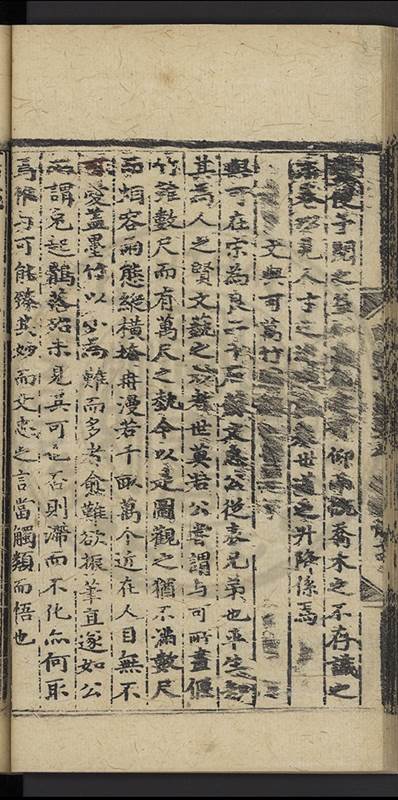 使予聞之仰喬木之不存識之
見人士之世道之升降係焉
文與可萬竹
與可在宋為良二千石蘇文忠公從表兄弟也平生知
其為人之賢文藝之者世莫若公嘗謂与可所畫偃
竹雖數尺而有萬尺之勢今以是圖觀之猶不滿數尺
而烟容雨態縱橫掩冉漫若千畝萬个近在人目無不
可愛蓋墨竹以少為難而多者愈難欲振筆直遂如公
所謂兔起鶻落殆未見其可也否則滯而不化亦何取
焉惟与可能臻其妙而文忠之言當觸類而悟也